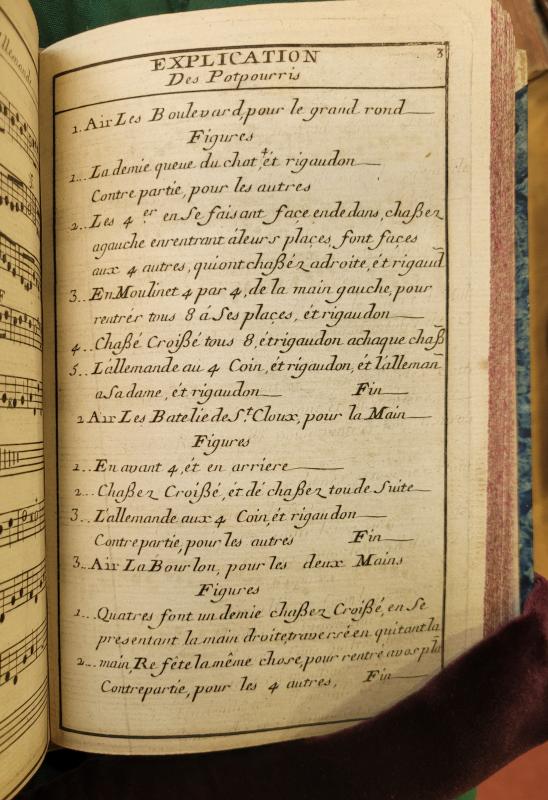 Allemande
3
EXPLICATION
Des Potpourris
1. Air Les Boulevard, pour le grand rond
Figures
1... La demie queue du chat, ét rigaudon
Contre partie, pour les autres
2... Les 4 er en se faisant façe endedans, chaßez
agauche enrentrant áleurs plaçes, font façes
aux 4 autres, quiont chaßéz adroite, ét rigaud
3... En Moulinet 4 par 4, de la main gauche, pour
rentrér tous 8 á Ses plaçes, ét rigaudon
4... Chaßé Croißé tous 8, ét rigaudon achaque chaß
5... L'allemande au 4 Coin, ét rigaudon, ét l'alleman̄
asadame, ét rigaudon Fin
2 Air Les Batelie de St. Cloux, pour la Main
Figures
1... En avant 4, ét en arriere
2... Chaßez Croißé, ét dé chaßez toude Suite
3... L'allemande aux 4 Coin, ét rigaudon
Contre partie, pour les autres Fin
3.. Air La Bourlon, pour les deux Mains
Figures
1... Quatres font un demie chaßez Croißé, en Se
présentant la main droite, traversé en quitant la
2... main, Re féte la même chose, pour rentré avos pla
Contrepartie, pour les 4 autres, Fin